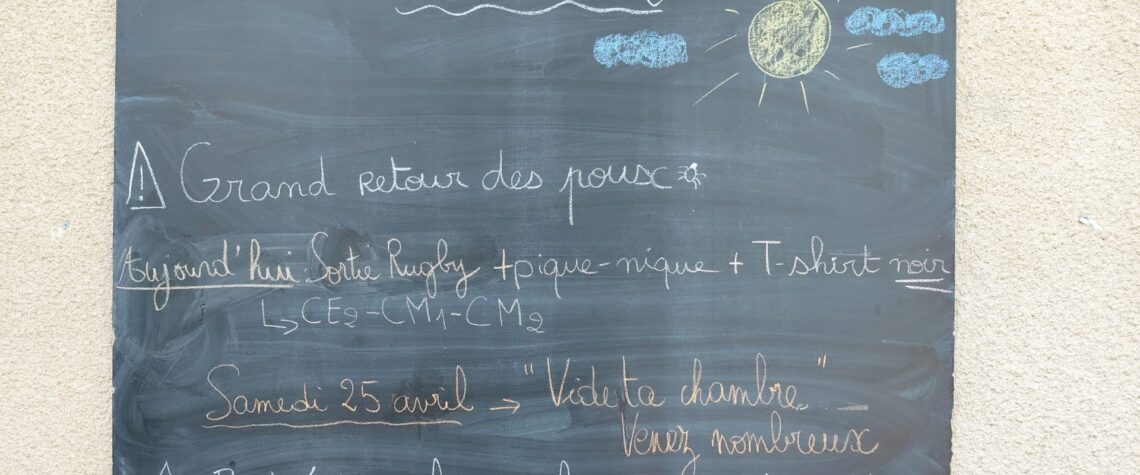 Grand retour des poux
Aujourd'hui : Sortie Rugby + pique-nique + T-shirt noir
↳ CE2-CM1-CM2
Samedi 25 avril → "Vide ta chambre"
Venez nombreux